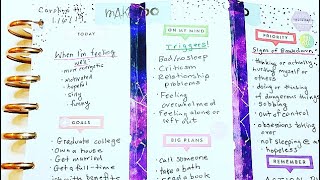 TODAY
When I'm feeling
well
- more energetic
- motivated
- hopeful
- silly
- funny
GOALS
- Graduate college
- Own a house
- Get married
- Get a full-time
job with benefits
ON MY MIND
Triggers!
- Bad/no sleep
- Criticism
- Relationship
problems
- Feeling
overwhelmed
- Feeling alone or
left out
BIG PLANS
- Call someone
- Take a bath
- Read a book
PRIORITY
Signs of Breakdown
- thinking about or
actually hurting
myself or others
- doing or thinking
of dangerous things
- sobbing
- out of control
- obsessions taking
over
- not sleeping
- hopeless
REMEMBER